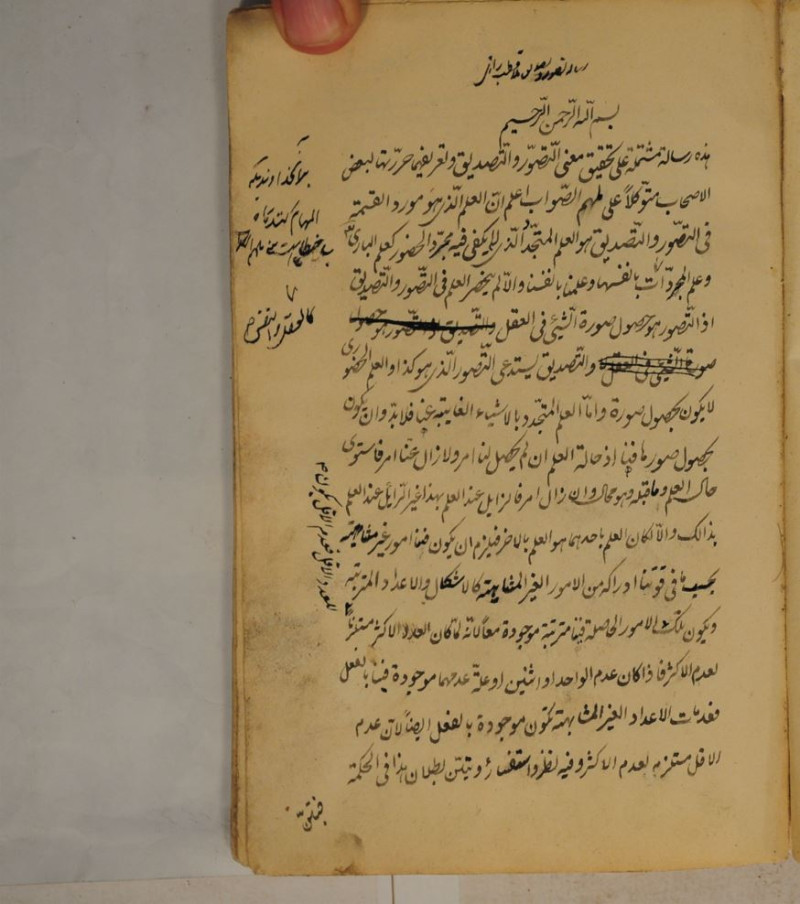 رساله تصور و تصدیق ملا قطب رازی
بسم الله الرحمن الرحیم
هذه رسالة مشتملة علی تحقیق معنی التصوّر والتصدیق وتعریفهما حرّرتها لبعض
الاصحاب متوکلاً علی ملهم الصواب اعلم انّ العلم الذی هو مورد القسمة
فی التصوّر والتصدیق هو العلم المتجدّد الذی لا یکفی فیه مجرّد الحضور کعلم الباری
وعلم المجردات بانفسها وعلمنا بانفسنا والّا لم ینحصر العلم فی التصوّر والتصدیق
اذ التصور هو حصول صورة الشیئ فی العقل والتصدیق والتصور هو حصول
صورة الشیئ فی العقل والتصدیق یستدعی التصور الذی هو کذا والعلم الحضوری
لا یکون بحصول صورة وامّا العلم المتجدد بالاشیاء الغایبة عنا فلا بدّ وان یکون
بحصول صور ما فینا اذ حالة العلم ان لم یحصل لنا امر ولا زال عنّا امر فاستوی
حال العلم وما قبله وهو محال وان زال امر فالزایل عند العلم بهذا غیر الزایل عند العلم
بذالک والّا لکان العلم باحدهما هو العلم بالاخر فیلزم ان یکون فینا امور غیر متناهیة
بحسب ما فی قوتنا ادراکه من الامور الغیر المتناهیة کالاشکال والاعداد المترتبة
ویکون تلک الامور الحاصلة فینا مترتبة موجودة معاً لانّه لما کان العدد الاکثر مستلزماً
لعدم الاکثر فاذا کان عدم الواحد او اثنین او علة عدمهما موجودة فینا بالفعل
فعدمات الاعداد الغیر المتناهیة تکون موجودة بالفعل ایضاً لانّ عدم
الاقل مستلزم لعدم الاکثر وفیه نظر واستفسار وتبیّن بطلان هذا فی الحکمة
کالعقل والنفس